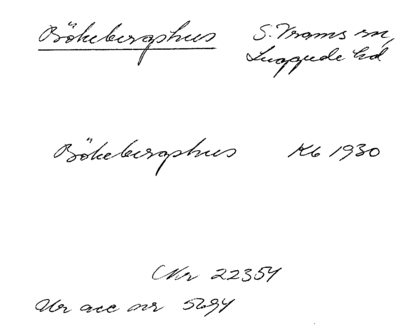 Bökebergshus S. Vrams sn,
Luggude hd
Bökebergshus Kb 1930
Nr 22354
Ur acc nr 5694